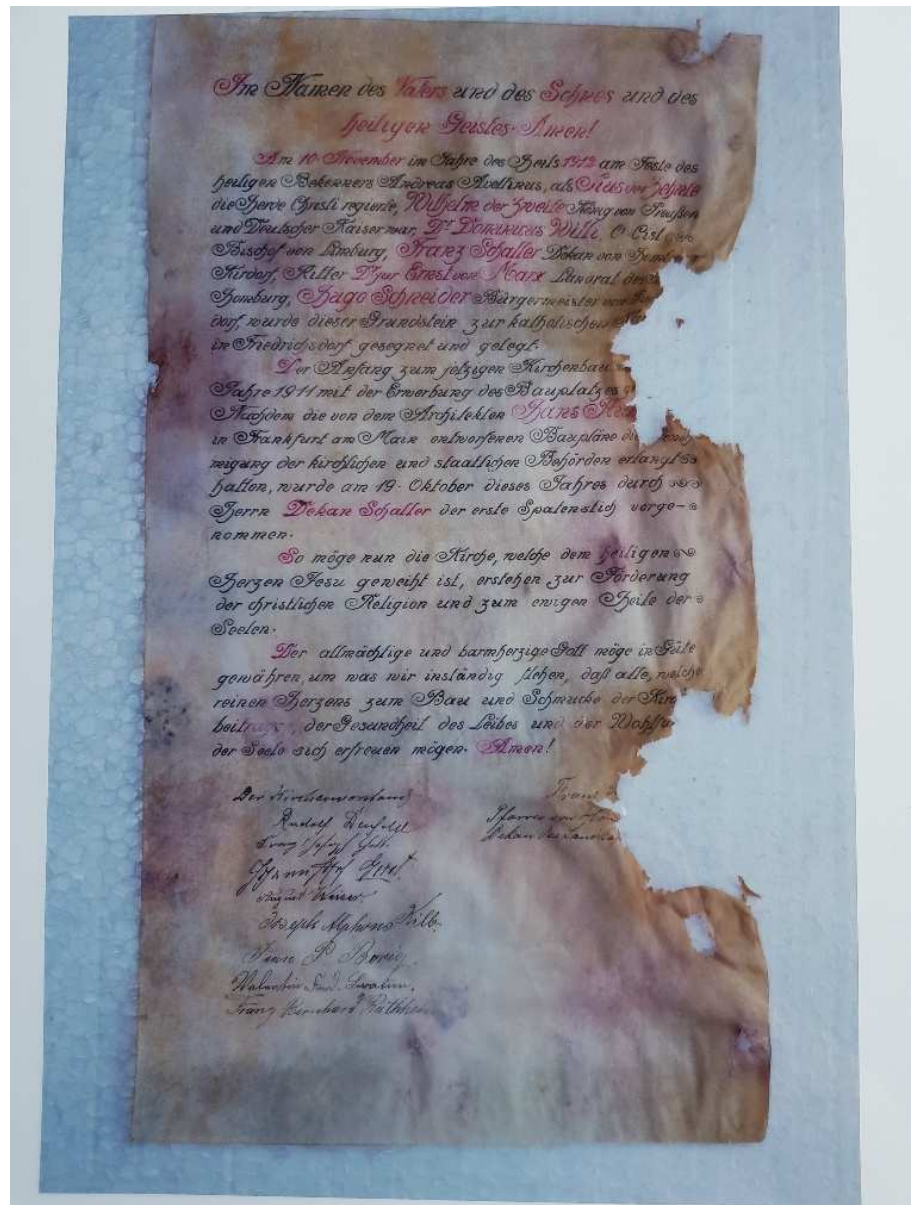 Im Namen des Vaters und des Sohnes und des
heiligen Geistes. Amen!
Am 10. November im Jahre des Heils 1912 am Feste des
heiligen Bekenners Andreas Avellinus, als Pius der Zehnte
die Herde Christi regierte, Wilhelm der Zweite König von Preußen
und Deutscher Kaiser war, Dr. Dominikus Willi O. Cist.
Bischof von Limburg, Franz Schaller Dekan von
Kirdorf, Ritter Dr. jur Ernst von Marx Landrat des
Homburg, Hugo Schneider Bürgermeister von
dorf, wurde dieser Grundstein zur katholischen
in Friedrichsdorf gesegnet und gelegt.
Der Anfang zum jetzigen Kirchenbau
Jahre 1911 mit der Erwerbung des Bauplatzes
Nachdem die von dem Architekten Hans
in Frankfurt am Main entworfenen Baupläne die
migung der kirchlichen und staatlichen Behörden erlangt
hatten, wurde am 19. Oktober dieses Jahres durch
Herrn Dekan Schaller der erste Spatenstich vorge-
nommen.
So möge nun die Kirche, welche dem heiligen
Herzen Jesu geweiht ist, erstehen zur Förderung
der christlichen Religion und zum ewigen Heile der
Seelen.
Der allmächtige und barmherzige Gott möge in Güte
gewähren, um was wir inständig flehen, daß alle, welche
reinen Herzens zum Bau und Schmucke der
beitragen, der Gesundheit des Leibes und der
der Seele sich erfreuen mögen. Amen!
Der Kirchenvorstand Franz
Rudolf Pfarrer von
Franz Joseph Dekan des
August
Joseph Alphons Kilb.
Valentin
Franz Bernhard